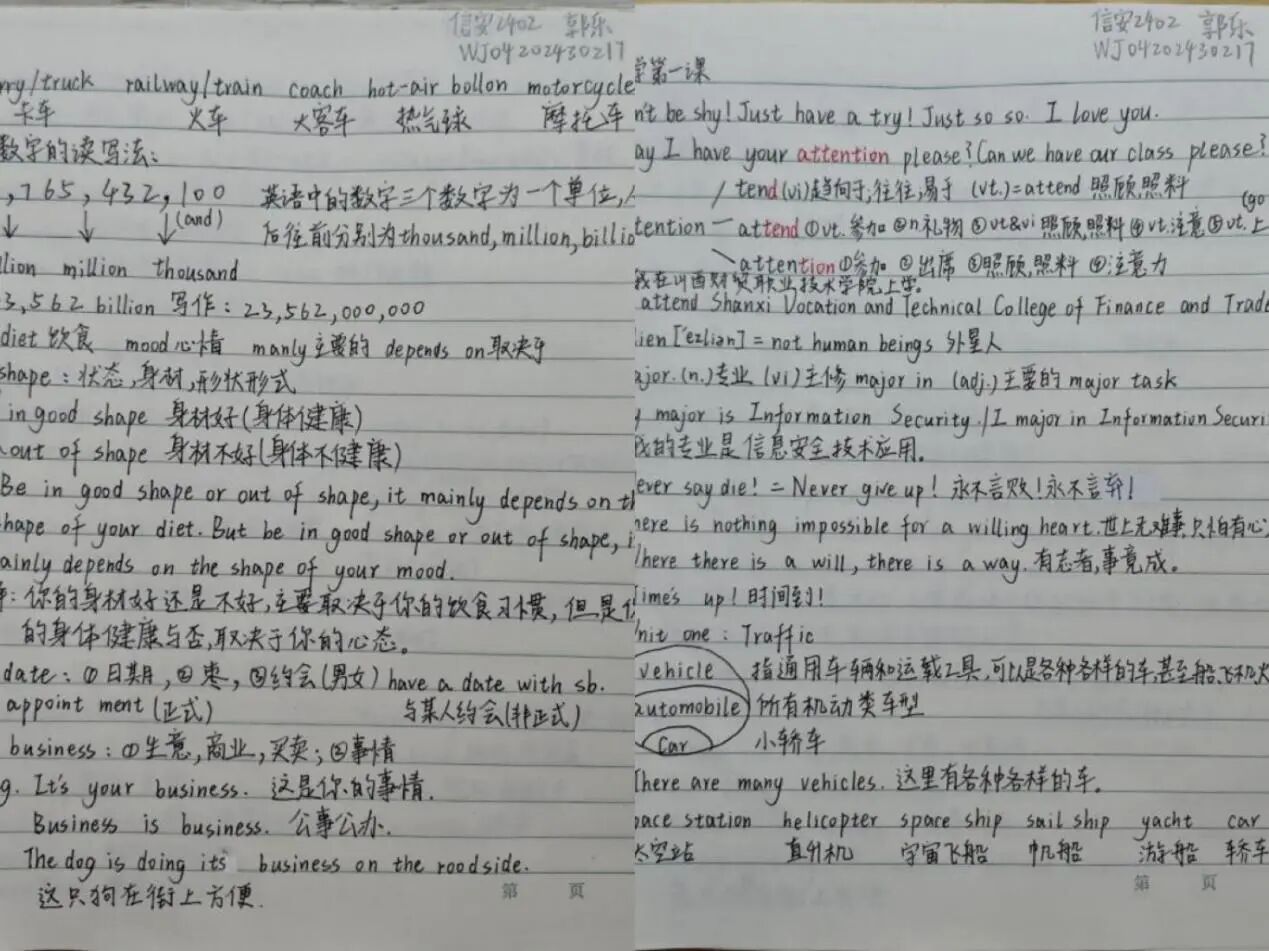 信安2402 郭乐
WJ04202430217
rry/truck railway/train coach hot-air bollon motorcycle
卡车 火车 大客车 热气球 摩托车
数字的读写法:
,765,432,100 英语中的数字三个数字为一个单位,
(and) 后往前分别为thousand,million,billio
llion million thousand
3,562 billion 写作: 23,562,000,000
diet 饮食 mood 心情 manly 主要的 depends on 取决于
shape: 状态,身材,形状形式
in good shape 身材好(身体健康)
out of shape 身材不好(身体不健康)
Be in good shape or out of shape, it mainly depends on th
hape of your diet. But be in good shape or out of shape, i
ainly depends on the shape of your mood.
:你的身材好还是不好,主要取决于你的饮食习惯,但是你
的身体健康与否,取决于你的心态。
date: ①日期,②枣,③约会(男女) have a date with sb.
appoint ment (正式) 与某人约会(非正式)
business: ①生意,商业,买卖; ②事情
g. It's your business. 这是你的事情.
Business is business. 公事公办.
The dog is doing its business on the roodside.
这只狗在街上方便.
第 页
信安2402 郭乐
WJ04202430217
学第一课
n't be shy! Just have a try! Just so so. I love you.
ay I have your attention please? Can we have our class please?
tend (vi) 趋向于,往往,易于 (vt.)=attend 照顾,照料
(go
tention — attend ①vt. 参加 ②n 礼物 ③vt&vi 照顾,照料 ④vt.注意 ⑤vt.上
attention ①参加 ②出席 ③照顾,照料 ④注意力
我在山西财贸职业技术学院上学。
attend Shanxi Vocation and Technical College of Finance and Trade
lien ['eɪliən] = not human beings 外星人
ajor. (n.) 专业 (vi) 主修 major in (adj.) 主要的 major task
y major is Information Security. / I major in Information Securi
我的专业是信息安全技术应用。
ever say die! = Never give up! 永不言败!永不言弃!
here is nothing impossible for a willing heart. 世上无难事,只怕有心
here there is a will, there is a way. 有志者,事竟成。
ime's up! 时间到!
nit one: Traffic
vehicle 指通用车辆和运载工具,可以是各种各样的车,甚至船、飞机、火
automobile 所有机动类车型
car 小轿车
here are many vehicles. 这里有各种各样的车。
pace station helicopter space ship sail ship yacht car
太空站 直升机 宇宙飞船 帆船 游船 轿车
第 页